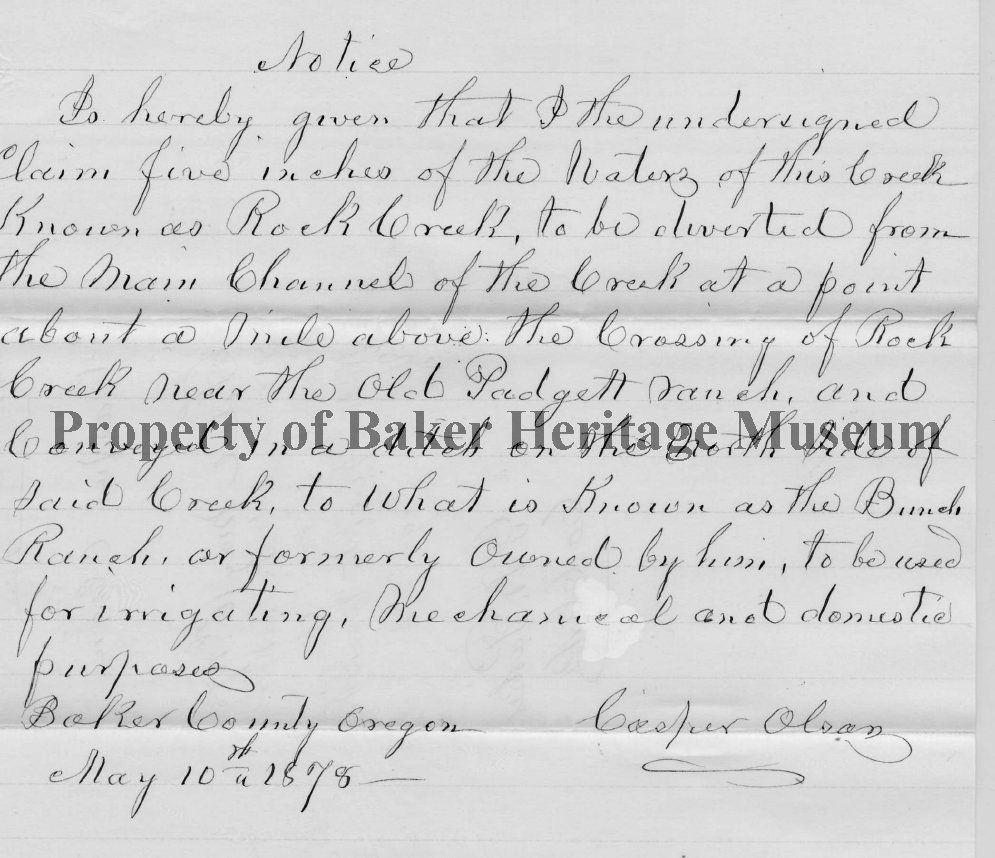 Notice
Is hereby given that I the undersigned
Claim five inches of the Waters of this Creek
Known as Rock Creek, to be diverted from
the Main Channel of the Creek at a point
about a Mile above the Crossing of Rock
Creek near the Old Padgett ranch, and
Property of Baker Heritage Museum
Conveyed in a ditch on the North Side of
said Creek, to What is Known as the Bunch
Ranch, or formerly Owned by him, to be used
for irrigating, Mechanical and domestic
purposes
Baker County Oregon Casper Olsan
May 10th 1878